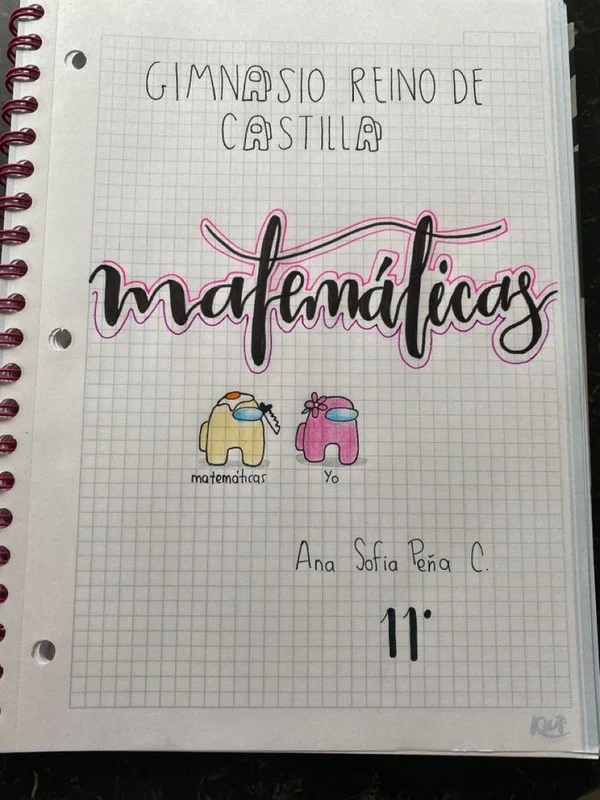 GIMNASIO REINO DE
CASTILLA
matemáticas
matemáticas Yo
Ana Sofia Peña C.
11°